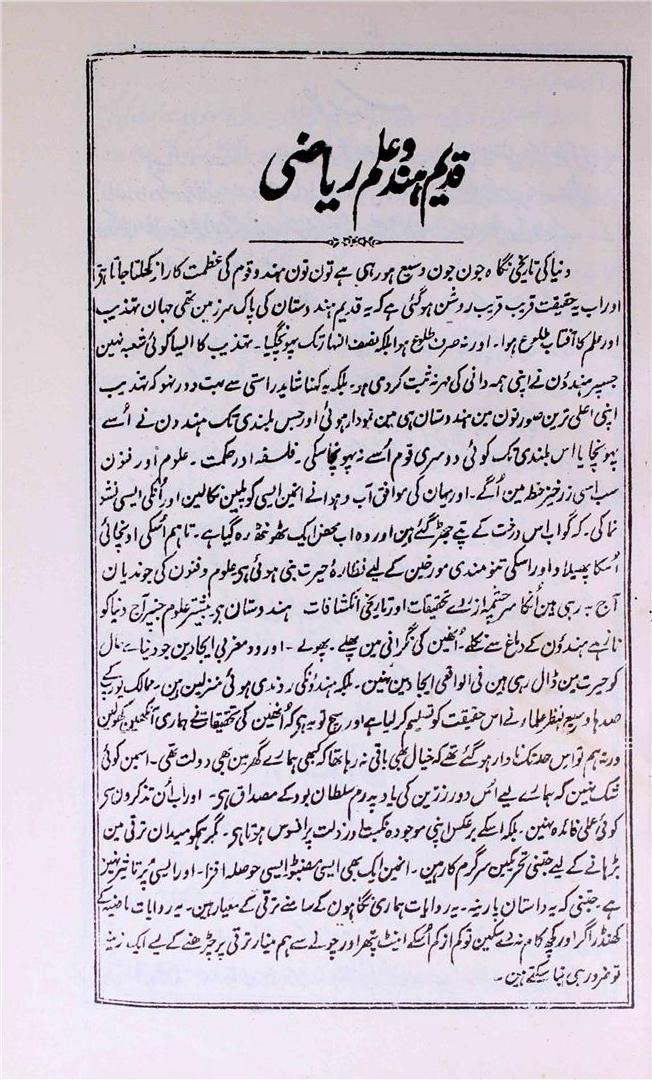 قدیم ہندو علم ریاضی
دنیا کی تاریخی نگاہ جون جون وسیع ہو رہی ہے تون تون ہندو قوم کی عظمت کا راز کھلتا جاتا ہی
اور اب یہ حقیقت قریب قریب روشن ہو گئی ہے کہ یہ قدیم ہندوستان کی پاک سرزمین تھی جہان تہذیب
اور علم کا آفتاب طلوع ہوا۔ اور نہ صرف طلوع ہوا بلکہ نصف النہار تک پہونچگیا۔ تہذیب کا ایسا کوئی شعبہ نہین
جسپر ہندؤن نے اپنی ہمہ دانی کی مہر نہ ثبت کر دی ہو۔ بلکہ یہ کہنا شاید راستی سے بہت دور نہو کہ تہذیب
اپنی اعلیٰ ترین صورتون مین ہندوستان ہی مین نمودار ہوئی اور جس بلندی تک ہندون نے اُسے
پہونچایا اس بلندی تک کوئی دوسری قوم اُسے نہ پہونچا سکی۔ فلسفہ اور حکمت۔ علوم اور فنون
سب اسی زرخیز خطہ مین اُگے۔ اور یہان کی موافق آب و ہوا نے انمین ایسی کوپلین نکالین اور اُنکی ایسی نشو
نما کی۔ کہ گو اب اس درخت کے پتے جھڑ گئے ہین اور وہ اب محض ایک ٹھونٹھ رہ گیا ہے۔ تاہم اُسکی اونچائی
اُسکا پھیلاو اور اسکی تنومندی مورخین کے لیے نظارۂ حیرت بنی ہوئی ہی علوم و فنون کی جو ندیان
آج بہ رہی ہین اُنکا سرچشمہ از روے تحقیقات اور تاریخی انکشافات ہندوستان ہی بیشتر علوم جنپر آج دنیا کو
ناز ہے ہندؤن کے دماغ سے نکلے۔ اُنھین کی نگرانی مین پھلے۔ پھولے۔ اور وہ مغربی ایجادین جو دنیاے حال
کو حیرت مین ڈال رہی ہین فی الواقعی ایجادین نہین۔ بلکہ ہندؤنکی روندی ہوئی منزلین ہین۔ ممالک یورپ کے
صدہا وسیع النظر علماء نے اس حقیقت کو تسلیم کر لیا ہے اور سچ تو یہ ہی کہ اُنھین کی تحقیقات نے ہماری آنکھین کھولین
ورنہ ہم تو اس حد تک نادار ہو گئے تھے کہ خیال بھی باقی نہ رہا تھا کہ کبھی ہمارے گھر مین بھی دولت تھی۔ اسمین کوئی
شک نہین کہ ہمارے لیے اُس دور زرین کی یاد پدرم سلطان بود کے مصداق ہی۔ اور اب اُن تذکرون سی
کوئی عملی فائدہ نہین۔ بلکہ اسکے برعکس اپنی موجودہ نکبت اور ذلت پر افسوس ہوتا ہی۔ مگر ہمکو میدان ترقی مین
بڑھانے کے لیے جتنی تحریکین سرگرم کار ہین۔ انمین ایک بھی ایسی مضبوط ایسی حوصلہ افزا۔ اور ایسی پُر تاثیر نہین
ہے۔ جتنی کہ یہ داستان پارینہ۔ یہ روایات ہماری نگاہون کے سامنے ترقی کے معیار ہین۔ یہ روایات ماضیہ کے
کھنڈر اگر اور کچھ کام نہ دے سکین تو کم از کم اُسکے اینٹ پتھر اور چونے سے ہم منار ترقی پر چڑھنے کے لیے ایک زینہ
تو ضرور ہی بنا سکتے ہین۔